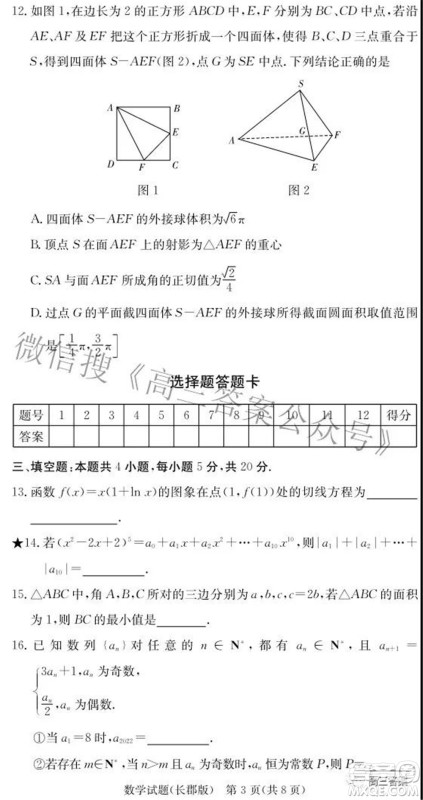 12. 如图 1,在边长为 2 的正方形 ABCD 中,E,F 分别为 BC、CD 中点,若沿
AE、AF 及 EF 把这个正方形折成一个四面体,使得 B、C、D 三点重合于
S,得到四面体 S-AEF(图 2),点 G 为 SE 中点.下列结论正确的是
A B E D F C
S A G F E
图 1 图 2
A. 四面体 S-AEF 的外接球体积为√6π
B. 顶点 S 在面 AEF 上的射影为△AEF 的重心
C. SA 与面 AEF 所成角的正切值为√2/4
D. 过点 G 的平面截四面体 S-AEF 的外接球所得截面圆面积取值范围
是[1/4π, 3/2π]
微信搜《高三答案公众号》
选择题答题卡
题号 1 2 3 4 5 6 7 8 9 10 11 12 得分
答案
三、填空题:本题共 4 小题,每小题 5 分,共 20 分.
13. 函数 f(x)=x(1+ln x)的图象在点(1,f(1))处的切线方程为
.
★14. 若(x²-2x+2)⁵=a₀+a₁x+a₂x²+…+a₁₀x¹⁰,则|a₁|+|a₂|+…+
|a₁₀|= .
15. △ABC 中,角 A,B,C 所对的三边分别为 a,b,c,c=2b,若△ABC 的面积
为 1,则 BC 的最小值是 .
16. 已知数列{aₙ}对任意的 n∈N*,都有 aₙ∈N*,且 aₙ₊₁=
{3aₙ+1,aₙ 为奇数,
aₙ/2,aₙ 为偶数.
①当 a₁=8 时,a₂₀₂₂= .
②若存在 m∈N*,当 n>m 且 aₙ 为奇数时,aₙ 恒为常数 P,则 P=
数学试题(长郡版) 第 3 页(共 8 页)